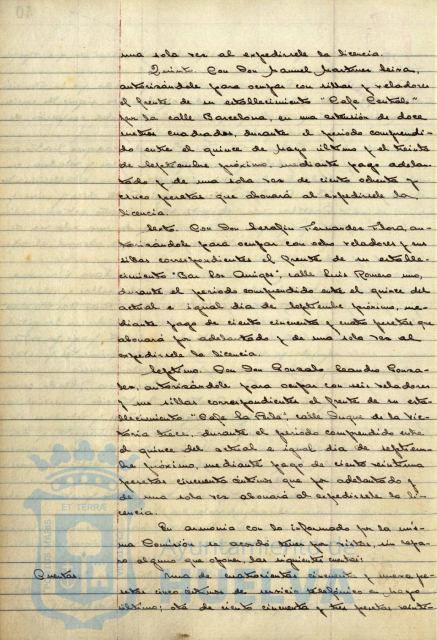 una sola vez al expedirsele la licencia.
Quinto. Con Don Manuel Martínez Leira,
autorizándole para ocupar con sillas y veladores
el frente de su establecimiento "Café Central"
por la calle Barcelona, en una extensión de doce
metros cuadrados, durante el periodo comprendi-
do entre el quince de Mayo último y el treinta
de Septiembre próximo, mediante pago adelan-
tado y de una sola vez de ciento ochenta y
cinco pesetas que abonará al expedirsele la
licencia.
Sexto. Con Don Serafin Fernandez Flora, au-
torizándole para ocupar con ocho veladores y sus
sillas correspondientes el frente de su estable-
cimiento "Bar Los Amigos", calle Luis Romero uno,
durante el periodo comprendido entre el quince del
actual e igual dia de Septiembre próximo, me-
diante pago de ciento cincuenta y cuatro pesetas que
abonará por adelantado y de una sola vez al
expedirsele la licencia.
Septimo. Con Don Gonzalo Leandro Gonza-
lez, autorizándole para ocupar con seis veladores
y sus sillas correspondientes el frente de su esta-
blecimiento "Café La Pila", calle Duque de la Vic-
toria trece, durante el periodo comprendido entre
el quince del actual e igual dia de septiem-
bre próximo, mediante pago de ciento veintiuna
pesetas cincuenta céntimos que por adelantado y
de una sola vez abonará al expedirsele la li-
cencia.
En armonia con lo informado por la mis-
ma Comisión se acordó tener por vistas, sin repa-
ro alguno que oponer, las siguientes cuentas:
Cuentas. Una de cuatrocientas cincuenta y nueve pe-
setas cinco céntimos de servicio telefónico en Mayo
último; otra de ciento cincuenta y tres pesetas veinte
ET TERRA
Ayuntamiento de